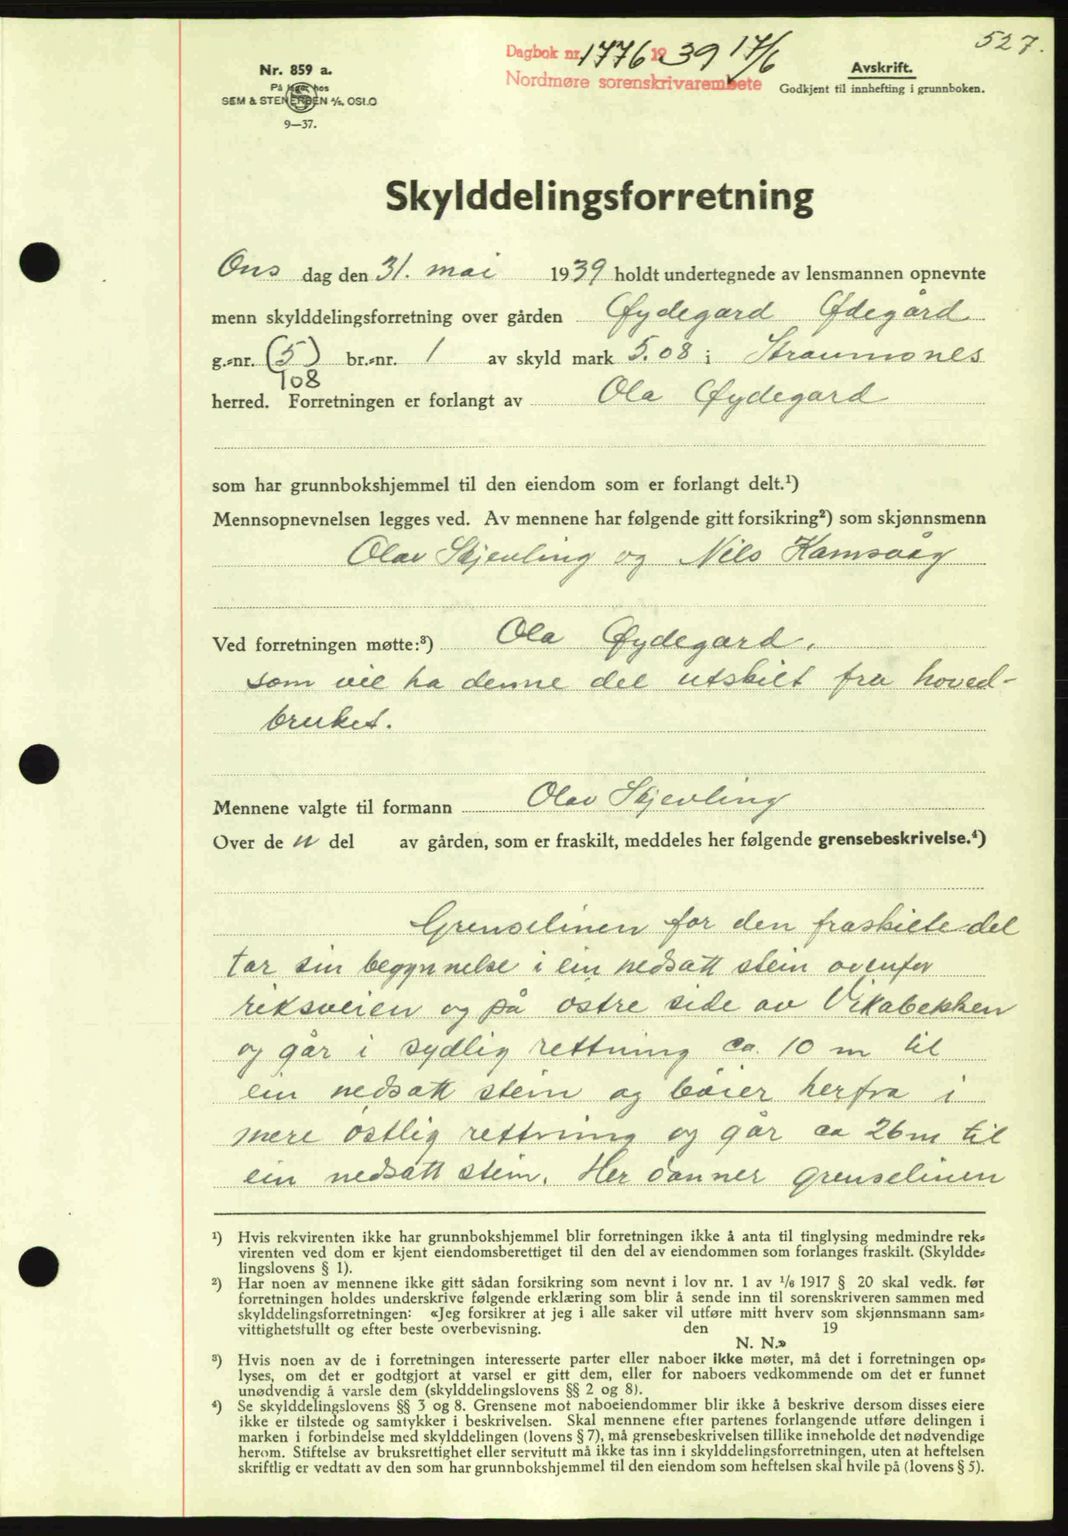 527.
Dagbok nr. 1776 1939 17/6
Nordmøre sorenskrivarembete
Nr. 859 a.
På lager hos
SEM & STENERSEN A/S, OSLO
9—37.
Avskrift.
Godkjent til innhefting i grunnboken.
Skylddelingsforretning
Ons dag den 31. mai 1939 holdt undertegnede av lensmannen opnevnte
menn skylddelingsforretning over gården Øydegard Ødegård
g.-nr. (5) br.-nr. 1 av skyld mark 5.08 i Straumsnes
108
herred. Forretningen er forlangt av Ola Øydegard
som har grunnbokshjemmel til den eiendom som er forlangt delt.¹)
Mennsopnevnelsen legges ved. Av mennene har følgende gitt forsikring²) som skjønnsmenn
Olav Skjevling og Nils Kamsvåg
Ved forretningen møtte:³) Ola Øydegard.
som vil ha denne del utskilt fra hoved-
bruket.
Mennene valgte til formann Olav Skjevling
Over de n del av gården, som er fraskilt, meddeles her følgende grensebeskrivelse.⁴)
Grenselinen for den fraskilte del
tar sin begynnelse i ein nedsatt stein ovenfor
riksveien og på østre side av Vikabekken
og går i sydlig rettning ca. 10 m til
ein nedsatt stein og bøier herfra i
mere østlig rettning og går ca 26 m til
ein nedsatt stein. Her danner grenselinen
¹) Hvis rekvirenten ikke har grunnbokshjemmel blir forretningen ikke å anta til tinglysing medmindre rek-
virenten ved dom er kjent eiendomsberettiget til den del av eiendommen som forlanges fraskilt. (Skyldde-
lingslovens § 1).
²) Har noen av mennene ikke gitt sådan forsikring som nevnt i lov nr. 1 av 1/6 1917 § 20 skal vedk. før
forretningen holdes underskrive følgende erklæring som blir å sende inn til sorenskriveren sammen med
skylddelingsforretningen: «Jeg forsikrer at jeg i alle saker vil utføre mitt hverv som skjønnsmann sam-
vittighetsfullt og efter beste overbevisning. den 19
N. N.»
³) Hvis noen av de i forretningen interesserte parter eller naboer ikke møter, må det i forretningen op-
lyses, om det er godtgjort at varsel er gitt dem, eller for naboers vedkommende om det er funnet
unødvendig å varsle dem (skylddelingslovens §§ 2 og 8).
⁴) Se skylddelingslovens §§ 3 og 8. Grensene mot naboeiendommer blir ikke å beskrive dersom disses eiere
ikke er tilstede og samtykker i beskrivelsen. Skal mennene efter partenes forlangende utføre delingen i
marken i forbindelse med skylddelingen (lovens § 7), må grensebeskrivelsen tillike inneholde det nødvendige
herom. Stiftelse av bruksrettighet eller servitutt må ikke tas inn i skylddelingsforretningen, uten at heftelsen
skriftlig er vedtatt av den som har grunnbokshjemmel til den eiendom som heftelsen skal hvile på (lovens § 5).